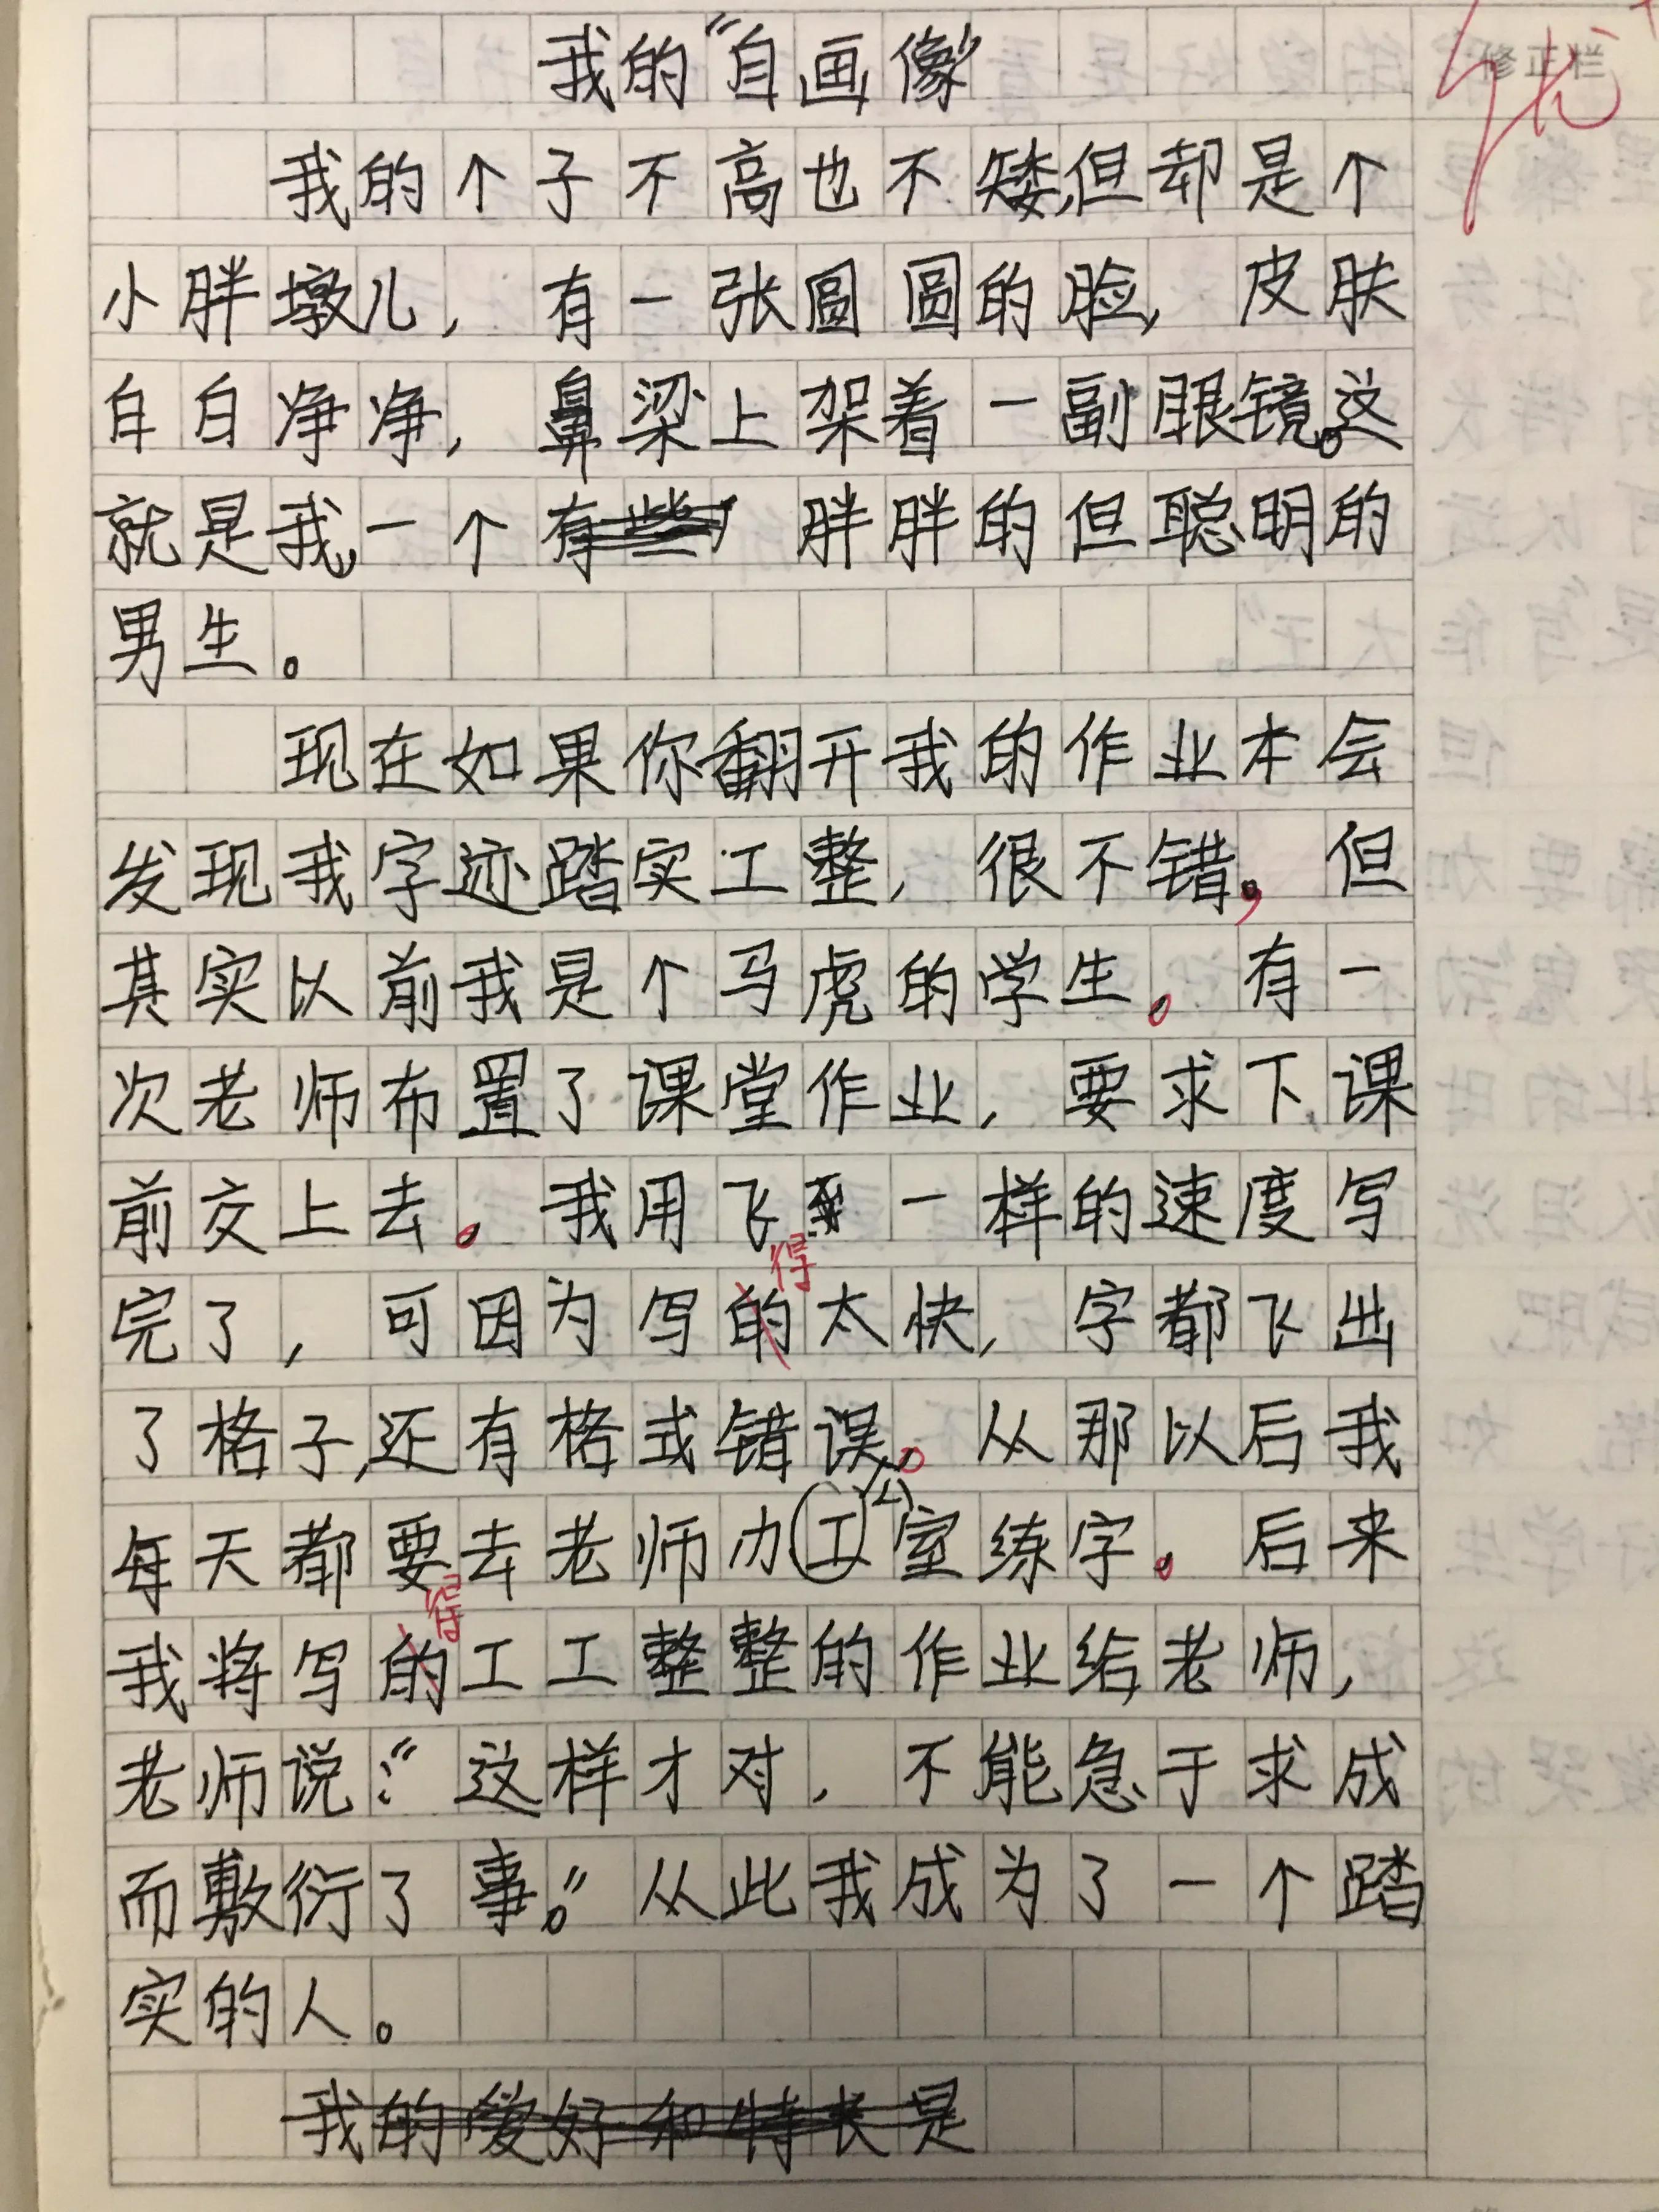 我的“自画像”
修正栏
优+
我的个子不高也不矮,但却是个
小胖墩儿,有一张圆圆的脸,皮肤
白白净净,鼻梁上架着一副眼镜。这
就是我,一个有些胖胖的但聪明的
男生。
现在如果你翻开我的作业本会
发现我字迹踏实工整,很不错,但
其实以前我是个马虎的学生。有一
次老师布置了课堂作业,要求下课
前交上去。我用飞一样的速度写
得
完了,可因为写的太快,字都飞出
了格子,还有格式错误。从那以后我
公
每天都要去老师办工室练字。后来
得
我将写的工工整整的作业给老师,
老师说:“这样才对,不能急于求成
而敷衍了事。”从此我成为了一个踏
实的人。
我的爱好和特长是